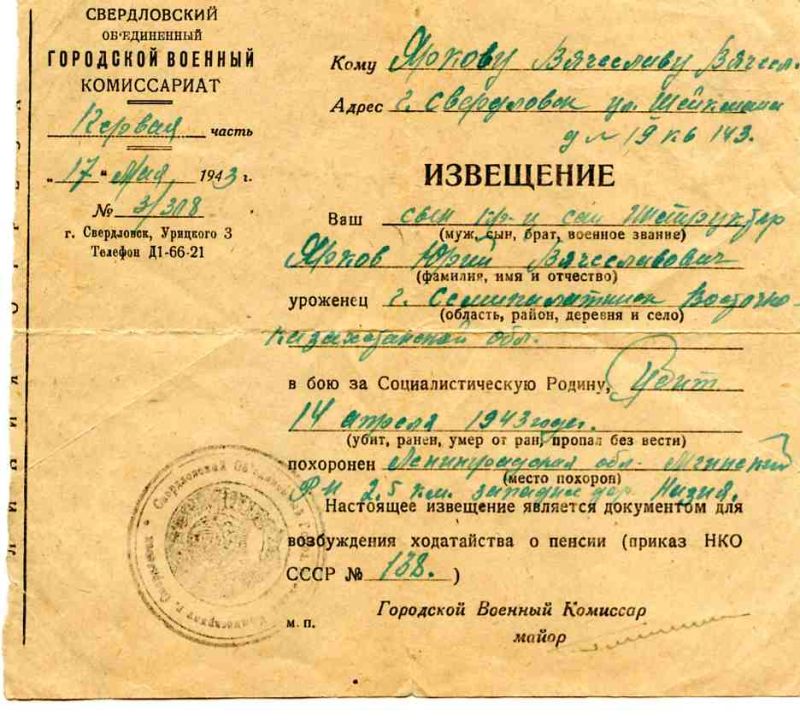 СВЕРДЛОВСКИЙ
ОБ'ЕДИНЕННЫЙ
ГОРОДСКОЙ ВОЕННЫЙ
КОМИССАРИАТ
Первая часть
„17" мая 1943 г.
№ 3/318
г. Свердловск, Урицкого 3
Телефон Д1-66-21
Кому Яркову Вячеславу Вячесл.
Адрес г. Свердловск ул. Шейкмана
д № 19 кв 143.
ИЗВЕЩЕНИЕ
Ваш сын кр-ц сан инструктор
(муж, сын, брат, военное звание)
Ярков Юрий Вячеславович
(фамилия, имя и отчество)
уроженец г. Семипалатинск Восточно-
(область, район, деревня и село)
Казахстанской обл.
в бою за Социалистическую Родину, Убит
14 апреля 1943 года.
(убит, ранен, умер от ран, пропал без вести)
похоронен Ленинградская обл. Мгинский
(место похорон)
р-н 2,5 км. западнее дер Назия.
Настоящее извещение является документом для
возбуждения ходатайства о пенсии (приказ НКО
СССР № 138.)
Городской Военный Комиссар
м. п.
майор